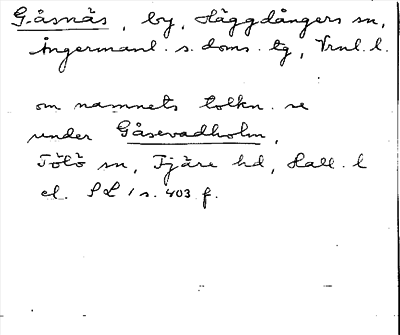 Gåsnäs, by, Häggdångers sn,
Ångermanl. s. doms. tg, Vrnl. l.
om namnets tolkn. se
under Gåsevadholm,
Tölö sn, Fjäre hd, Hall. l
el. SL 1 s. 403 f.